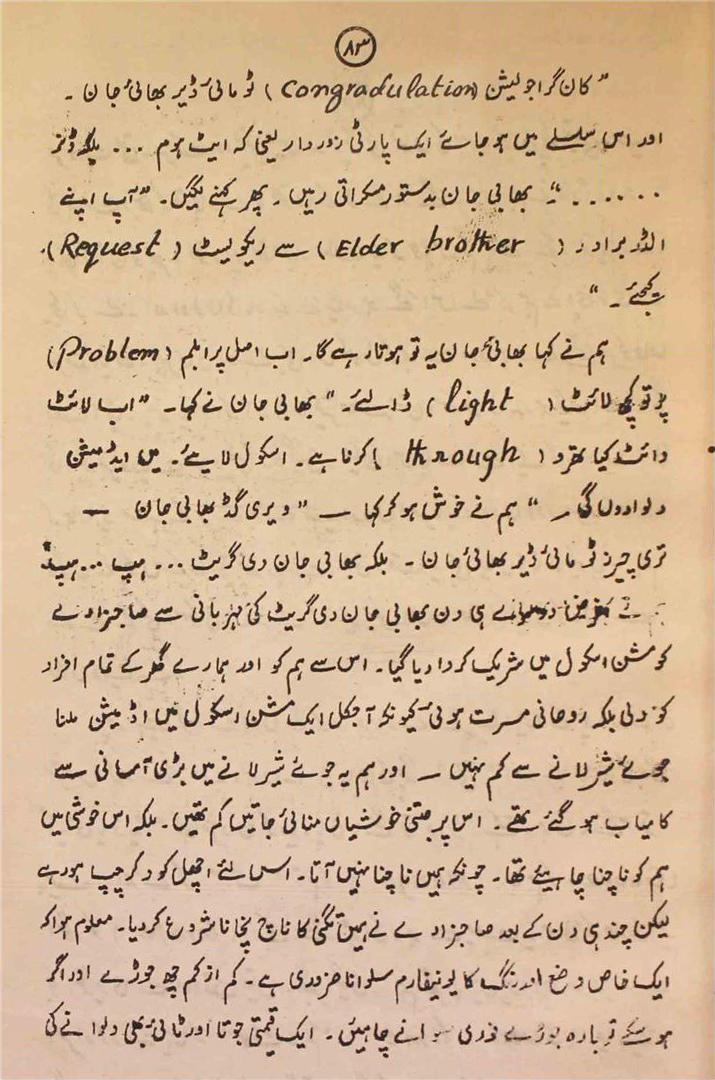 ۸۳
"کان گراجولیشن (Congradulation) ٹو مائی ڈیر بھائی جان ۔
اور اس سلسلے میں ہو جائے ایک پارٹی زوردار یعنی کہ ایٹ ہوم ... بلکہ ڈنر
......"۔ بھابی جان بدستور مسکراتی رہیں ۔ پھر کہنے لگیں ۔ "آپ اپنے
الڈر برادر (Elder brother) سے ریکویسٹ (Request)
کیجئے ۔"
ہم نے کہا بھابی جان یہ تو ہوتا رہے گا ۔ اب اصل پرابلم (Problem)
پر تو کچھ لائٹ (light) ڈالئے ۔" بھابی جان نے کہا ۔ "اب لائٹ
وائٹ کیا تھرو (through) کرنا ہے ۔ اسکول لایئے ۔ میں ایڈمیشن
دلوادوں گی ۔" ہم نے خوش ہو کر کہا — "ویری گڈ بھابی جان —
تری چیرز ٹو مائی ڈیر بھائی جان ۔ بلکہ بھابی جان دی گریٹ ... ہپ ... ہپ
غرض دوسرے ہی دن بھابی جان دی گریٹ کی مہربانی سے صاحبزادے
کو مشن اسکول میں شریک کروا دیا گیا ۔ اس سے ہم کو اور ہمارے گھر کے تمام افراد
کو دلی بلکہ روحانی مسرت ہوئی کیونکہ آجکل ایک مشن اسکول میں اڈمیشن ملنا
جوئے شیر لانے سے کم نہیں — اور ہم یہ جوئے شیر لانے میں بڑی آسانی سے
کامیاب ہو گئے تھے ۔ اس پر جتنی خوشیاں منائی جاتیں کم تھیں ۔ بلکہ اس خوشی میں
ہم کو ناچنا چاہیئے تھا ۔ چونکہ ہمیں ناچنا نہیں آتا ۔ اس لئے اچھل کود کر چپ ہو رہے
لیکن چند ہی دن کے بعد صاحبزادے نے ہمیں تگنی کا ناچ نچانا شروع کر دیا ۔ معلوم ہوا کہ
ایک خاص وضع اور رنگ کا یونیفارم سلوانا ضروری ہے ۔ کم از کم چھ جوڑے اور اگر
ہو سکے تو بارہ جوڑے فوری سلوانے چاہیئں ۔ ایک قیمتی جوتا اور ٹائی بھی دلوانے کی